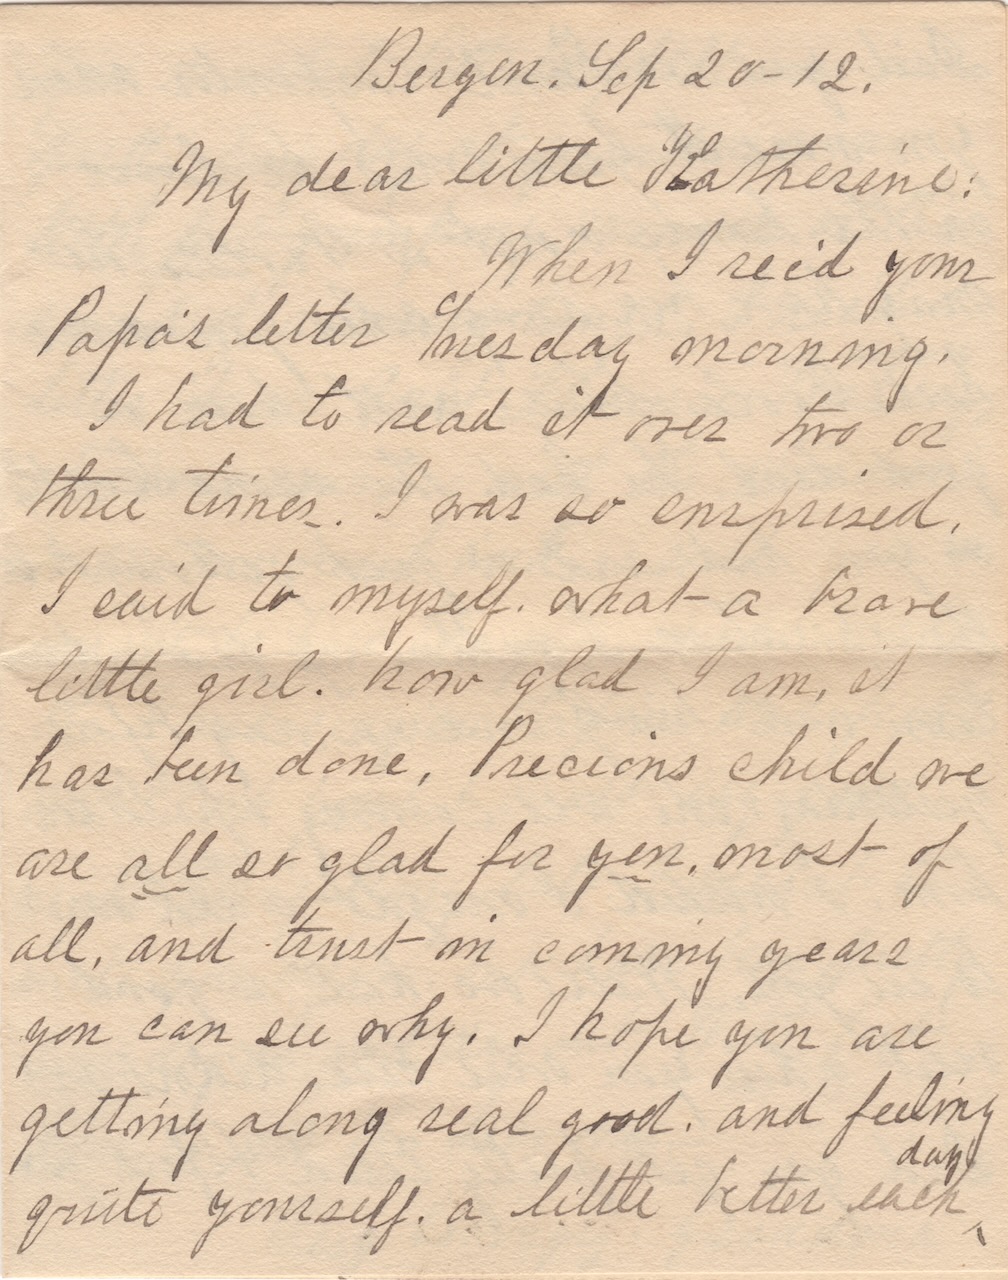 Bergen. Sep 20-12.
My dear little Katherine:
When I rec'd your
Papa's letter Tuesday morning.
I had to read it over two or
three times. I was so surprised.
I said to myself. what a brave
little girl. how glad I am, it
has been done, Precious child we
are all so glad for you, most of
all, and trust in coming years
you can see why. I hope you are
getting along real good. and feeling
quite yourself. a little better each day